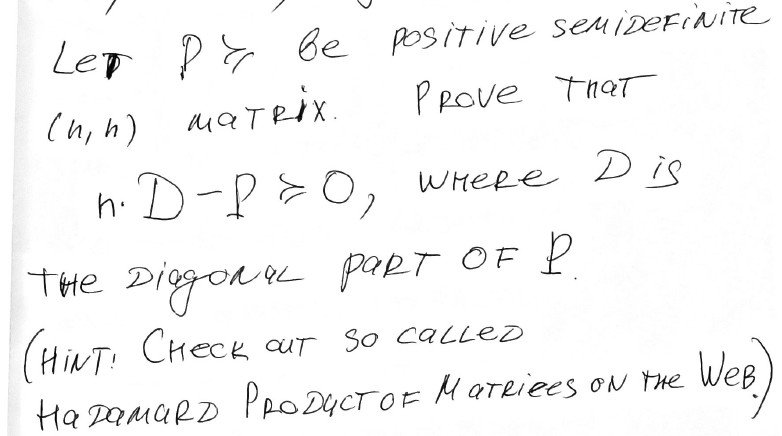 Let P ≥ be positive semidefinite
(n, n) matrix. Prove that
n·D - P ≥ 0, where D is
the diagonal part of P.
(Hint! Check out so called
Hadamard Product of Matriees on the Web.)